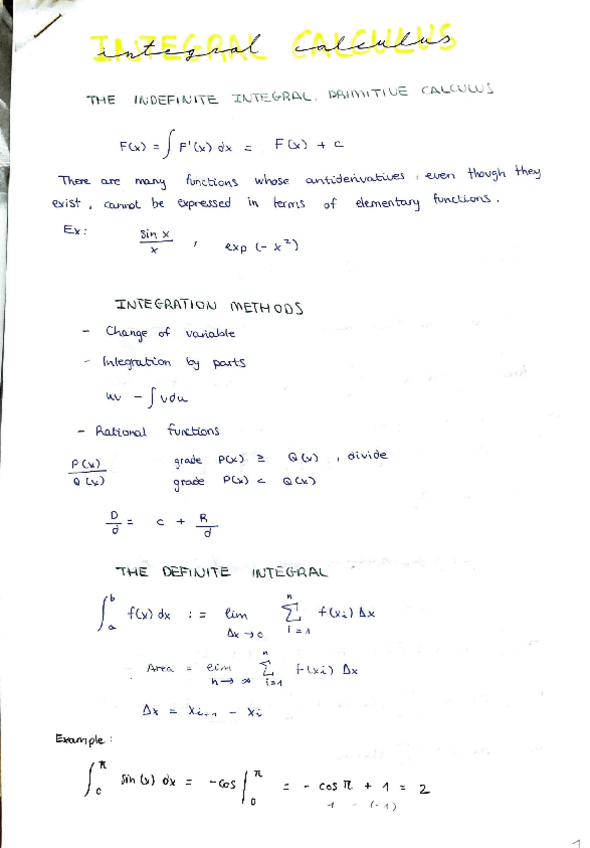 integral calculus
THE INDEFINITE INTEGRAL. PRIMITIVE CALCULUS
F(x) = ∫ F'(x) dx = F(x) + c
There are many functions whose antiderivatives, even though they
exist, cannot be expressed in terms of elementary functions.
Ex: sin x / x , exp (-x²)
INTEGRATION METHODS
- Change of variable
- Integration by parts
uv - ∫ v du
- Rational functions
P(x) / Q(x) grade P(x) ≥ Q(x), divide
grade P(x) < Q(x)
D/d = c + R/d
THE DEFINITE INTEGRAL
∫_a^b f(x) dx := lim_{Δx→0} Σ_{i=1}^n f(xi) Δx
Area = lim_{n→∞} Σ_{i=1}^n f(xi) Δx
Δx = xi+1 - xi
Example:
∫_0^π sin(x) dx = -cos |_0^π = - cos π + 1 = 2
1 - (-1)
1